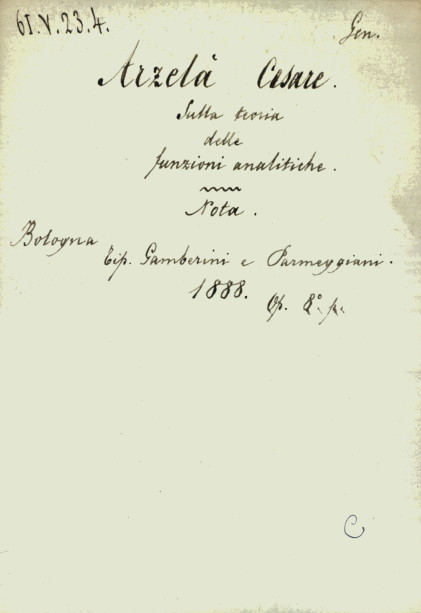 61.V.23.4.
Gen.
Arzelà Cesare.
Sulla teoria
delle
funzioni analitiche.
Nota.
Bologna
Tip. Gamberini e Parmeggiani.
1888. Op. 8º. p.
C